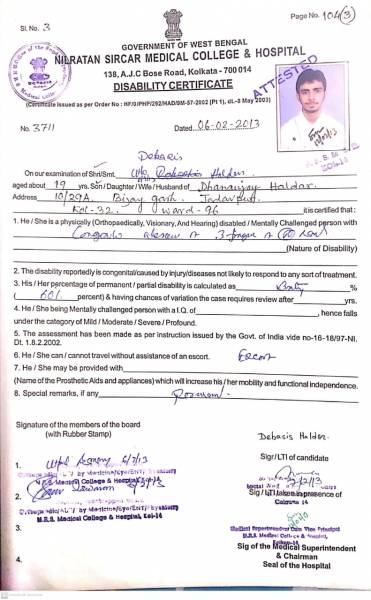 Sl. No. 3
Page No. 104(3)
GOVERNMENT OF WEST BENGAL
NILRATAN SIRCAR MEDICAL COLLEGE & HOSPITAL
138, A.J.C Bose Road, Kolkata - 700 014
DISABILITY CERTIFICATE
ATTESTED
(Certificate issued as per Order No : HF/O/PHP/292/HAD/8M-57-2002 (Pt 1), dt.-8 May 2003)
No. 3711 Dated 06-02-2013
Debasis
On our examination of Shri/Smt. Haldar
aged about 19 yrs. Son / Daughter / Wife / Husband of Dhananjay Haldar
Address 10/29A Bijay garh, Jadavpur
Kol-32 Ward-96 it is certified that :
1. He / She is a physically (Orthopaedically, Visionary, And Hearing) disabled / Mentally Challenged person with
3 finger
(Nature of Disability)
2. The disability reportedly is congenital/caused by injury/diseases not likely to respond to any sort of treatment.
3. His / Her percentage of permanent / partial disability is calculated as Sixty %
( 60% percent) & having chances of variation the case requires review after yrs.
4. He / She being Mentally challenged person with a I.Q. of , hence falls
under the category of Mild / Moderate / Severe / Profound.
5. The assessment has been made as per instruction issued by the Govt. of India vide no-16-18/97-NI.
Dt. 1.8.2.2002.
6. He / She can / cannot travel without assistance of an escort. Escort
7. He / She may be provided with
(Name of the Prosthetic Aids and appliances) which will increase his / her mobility and functional independence.
8. Special remarks, if any
Signature of the members of the board
(with Rubber Stamp)
Debasis Haldar
Sig / LTI of candidate
1.
M.R.S. Medical College & Hospital, Kol-14
Sig / LTI taken in presence of
2.
M.R.S. Medical College & Hospital, Kol-14
3.
Medical Superintendent Cum Vice Principal
M.R.S. Medical College & Hospital,
Sig of the Medical Superintendent
& Chairman
4.
Seal of the Hospital